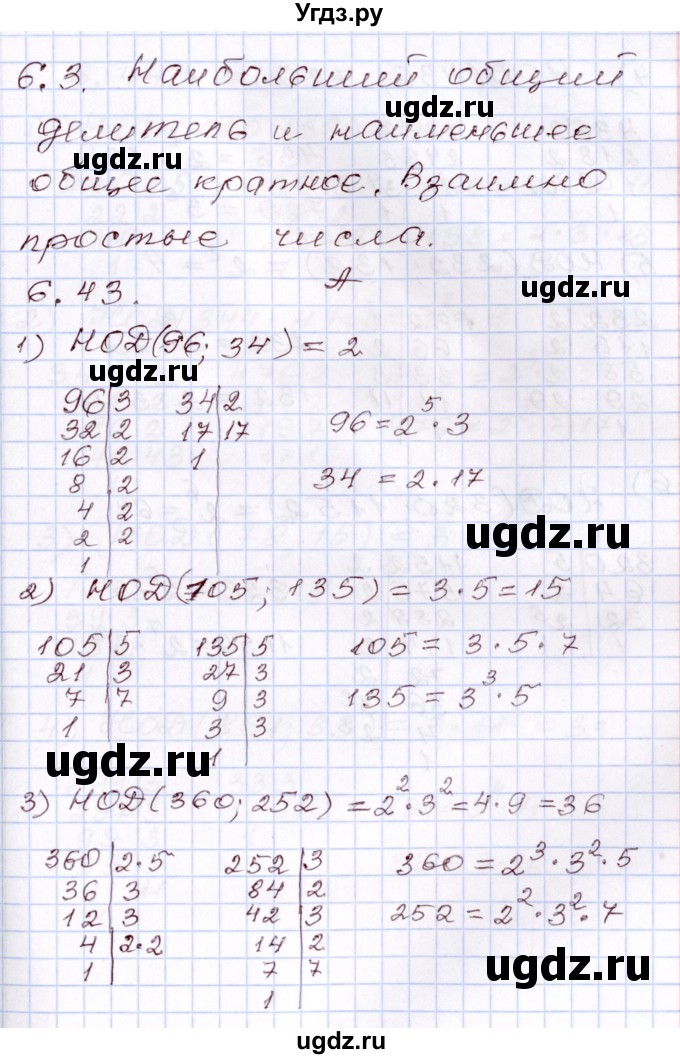 Угдз.ру
6.3. Наибольший общий
делитель и наименьшее
общее кратное. Взаимно
простые числа.
6.43. А
1) НОД(96; 34) = 2
96|3 34|2
32|2 17|17 96 = 2⁵·3
16|2 1
8|2 34 = 2·17
4|2
2|2
1
2) НОД(105; 135) = 3·5 = 15
105|5 135|5 105 = 3·5·7
21|3 27|3
7|7 9|3 135 = 3³·5
1 3|3
1
3) НОД(360; 252) = 2²·3² = 4·9 = 36
360|2·5 252|3 360 = 2³·3²·5
36|3 84|2
12|3 42|3 252 = 2²·3²·7
4|2·2 14|2
1 7|7
1
ugdz.ru
ugdz.ru
ugdz.ru
ugdz.ru
ugdz.ru
ugdz.ru
ugdz.ru
ugdz.ru
ugdz.ru
ugdz.ru